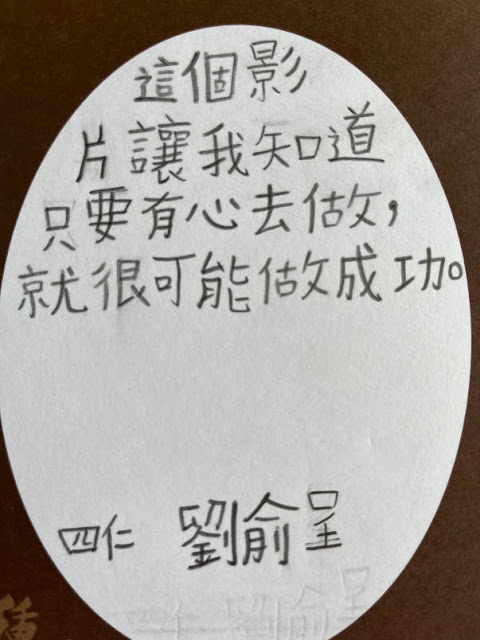 這個影
片讓我知道
只要有心去做，
就很可能做成功。
四仁 劉俞呈